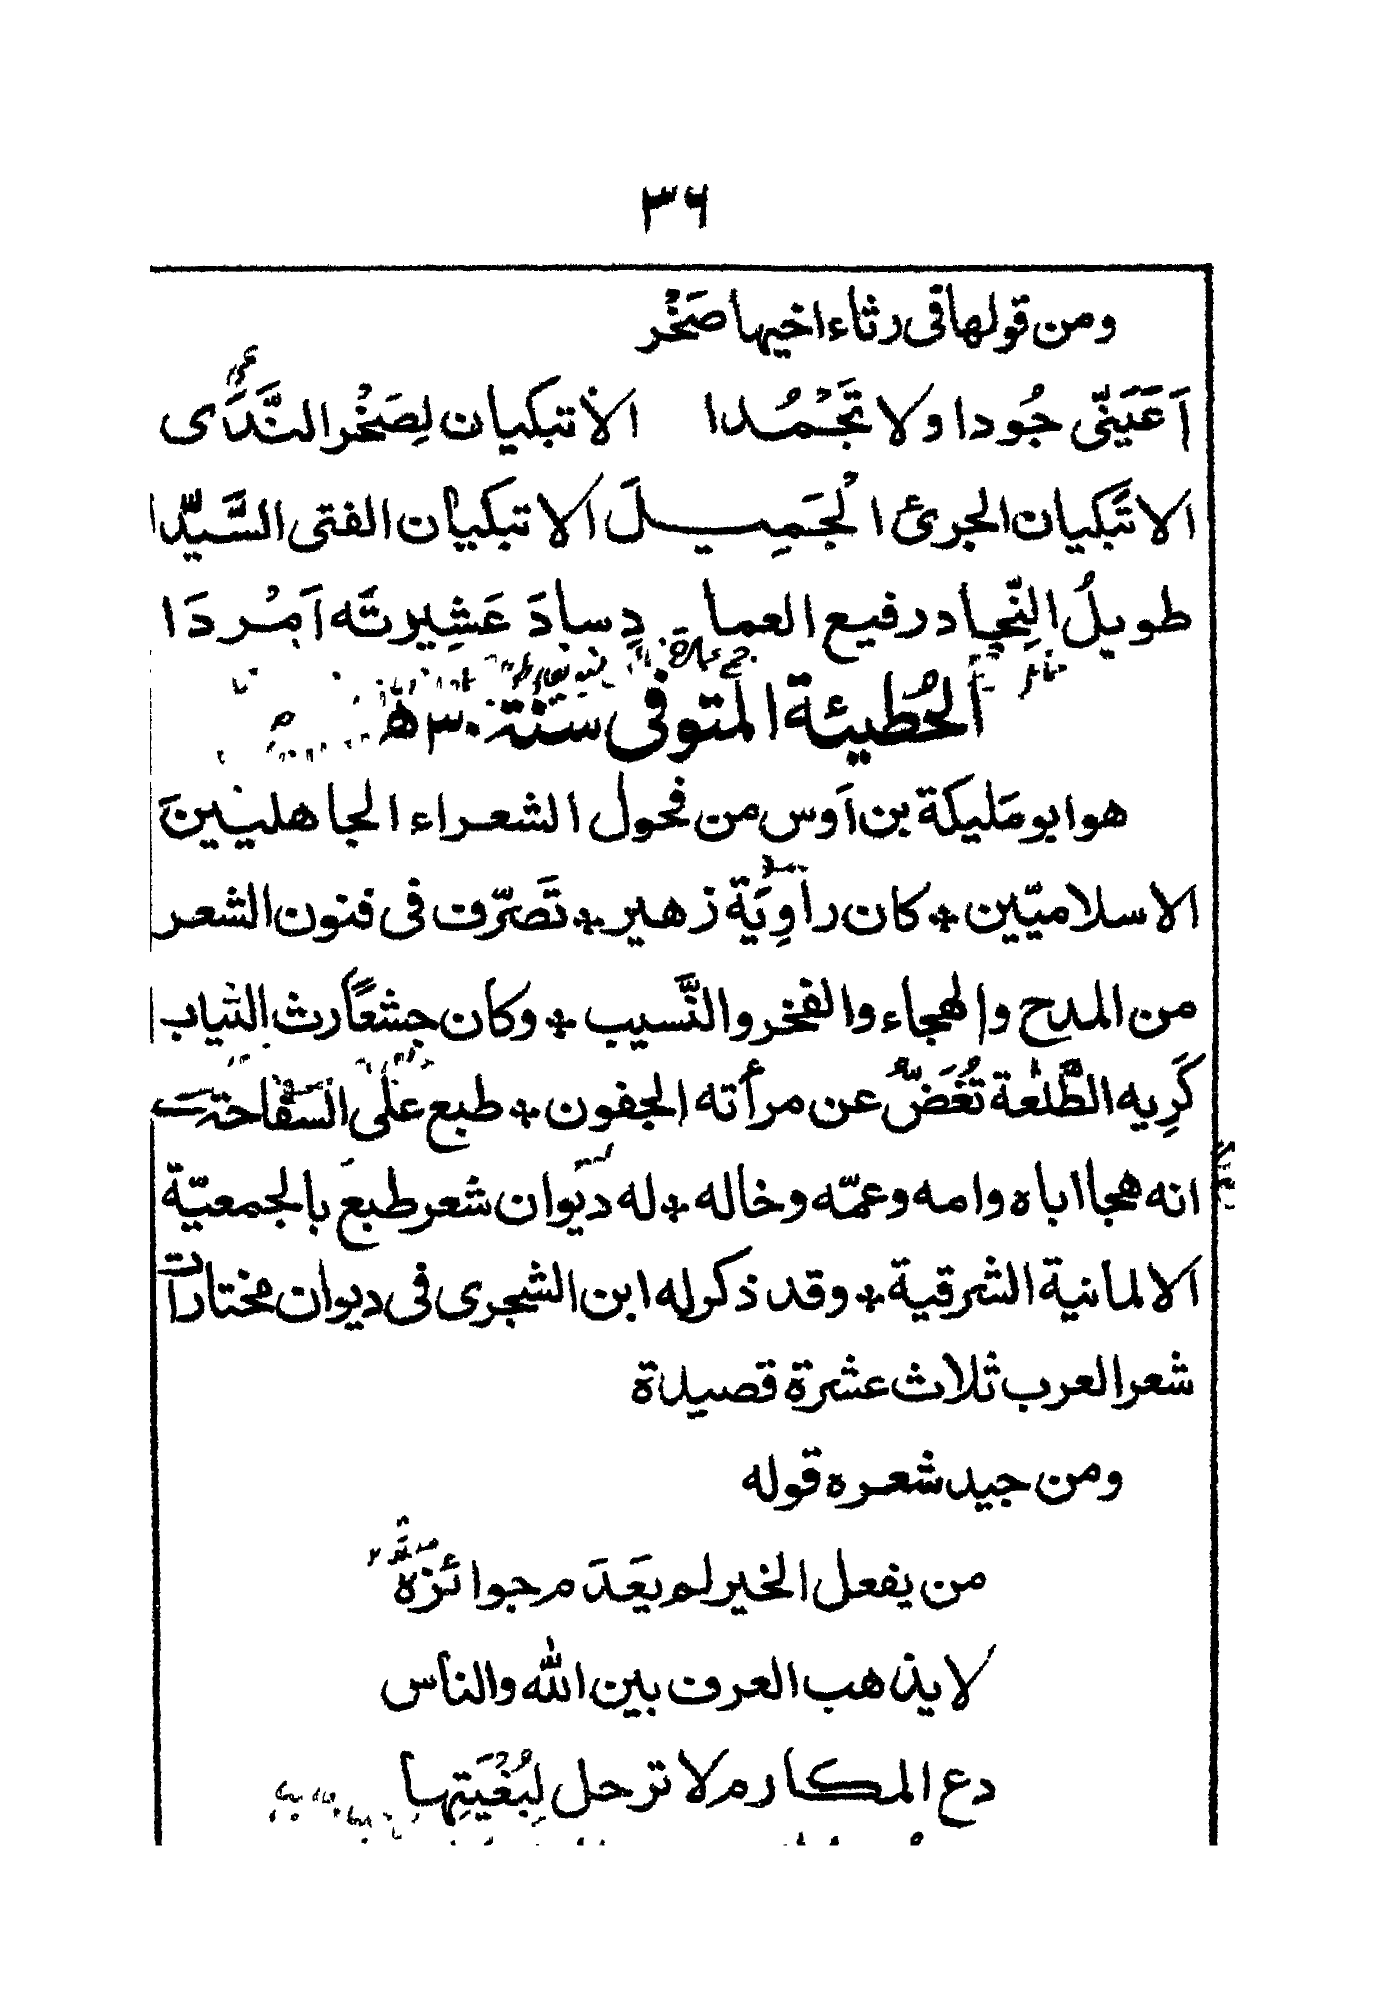 ٣٦
ومن قولها في رثاء اخيها صَخْر
اَعَيْنَيّ جُودا ولا تَجْمُدا الا تبكيان لِصَخْر النَّدَى
الا تَبكيان الجرئ الجَمِيلَ الا تبكيان الفتى السَّيّدا
طويلُ النِّجاد رفيع العماد سادَ عَشِيرتَه اَمْردَا
الحُطيئة المتوفى سَنة ٣٠ ھ
هو ابو مَليكة بن اَوس من فحول الشعراء الجاهليينَ
الاسلاميّين * كان راوِيَة زهير * تَصَرّف في فنون الشعر
من المدح والهجاء والفخر والنَّسيب * وكان جشعًا رث الثياب
كَرِيه الطَّلْعة تُغَضُّ عن مرأته الجفون * طبع على السَفاحة
انه هجا اباه وامه وعمّه وخاله * له ديوان شعر طبع بالجمعيّة
الالمانية الشرقية * وقد ذكر له ابن الشجرى في ديوان مختارات
شعر العرب ثلاث عشرة قصيدة
ومن جيد شعره قوله
من يفعل الخير لم يعَدَم جوائزَهُ
لا يذهب العرف بين الله والناس
دع المكارم لا ترحل لِبُغْيَتِها